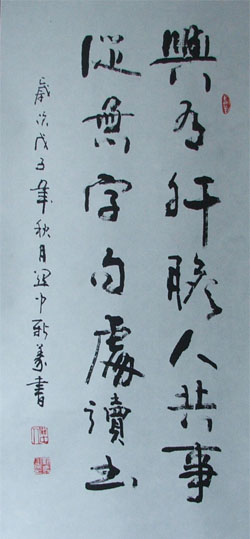 與有肝膽人共事
從無字句處讀書
歲次戊子年秋月書